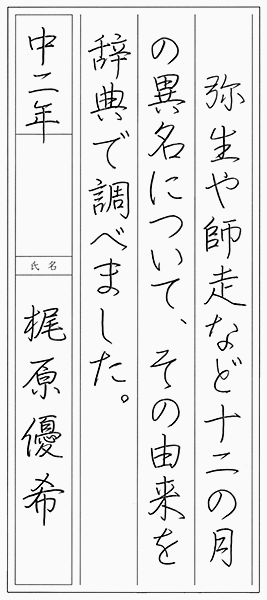 弥生や師走など十二の月
の異名について、その由来を
辞典で調べました。
中二年
氏名
梶原優希